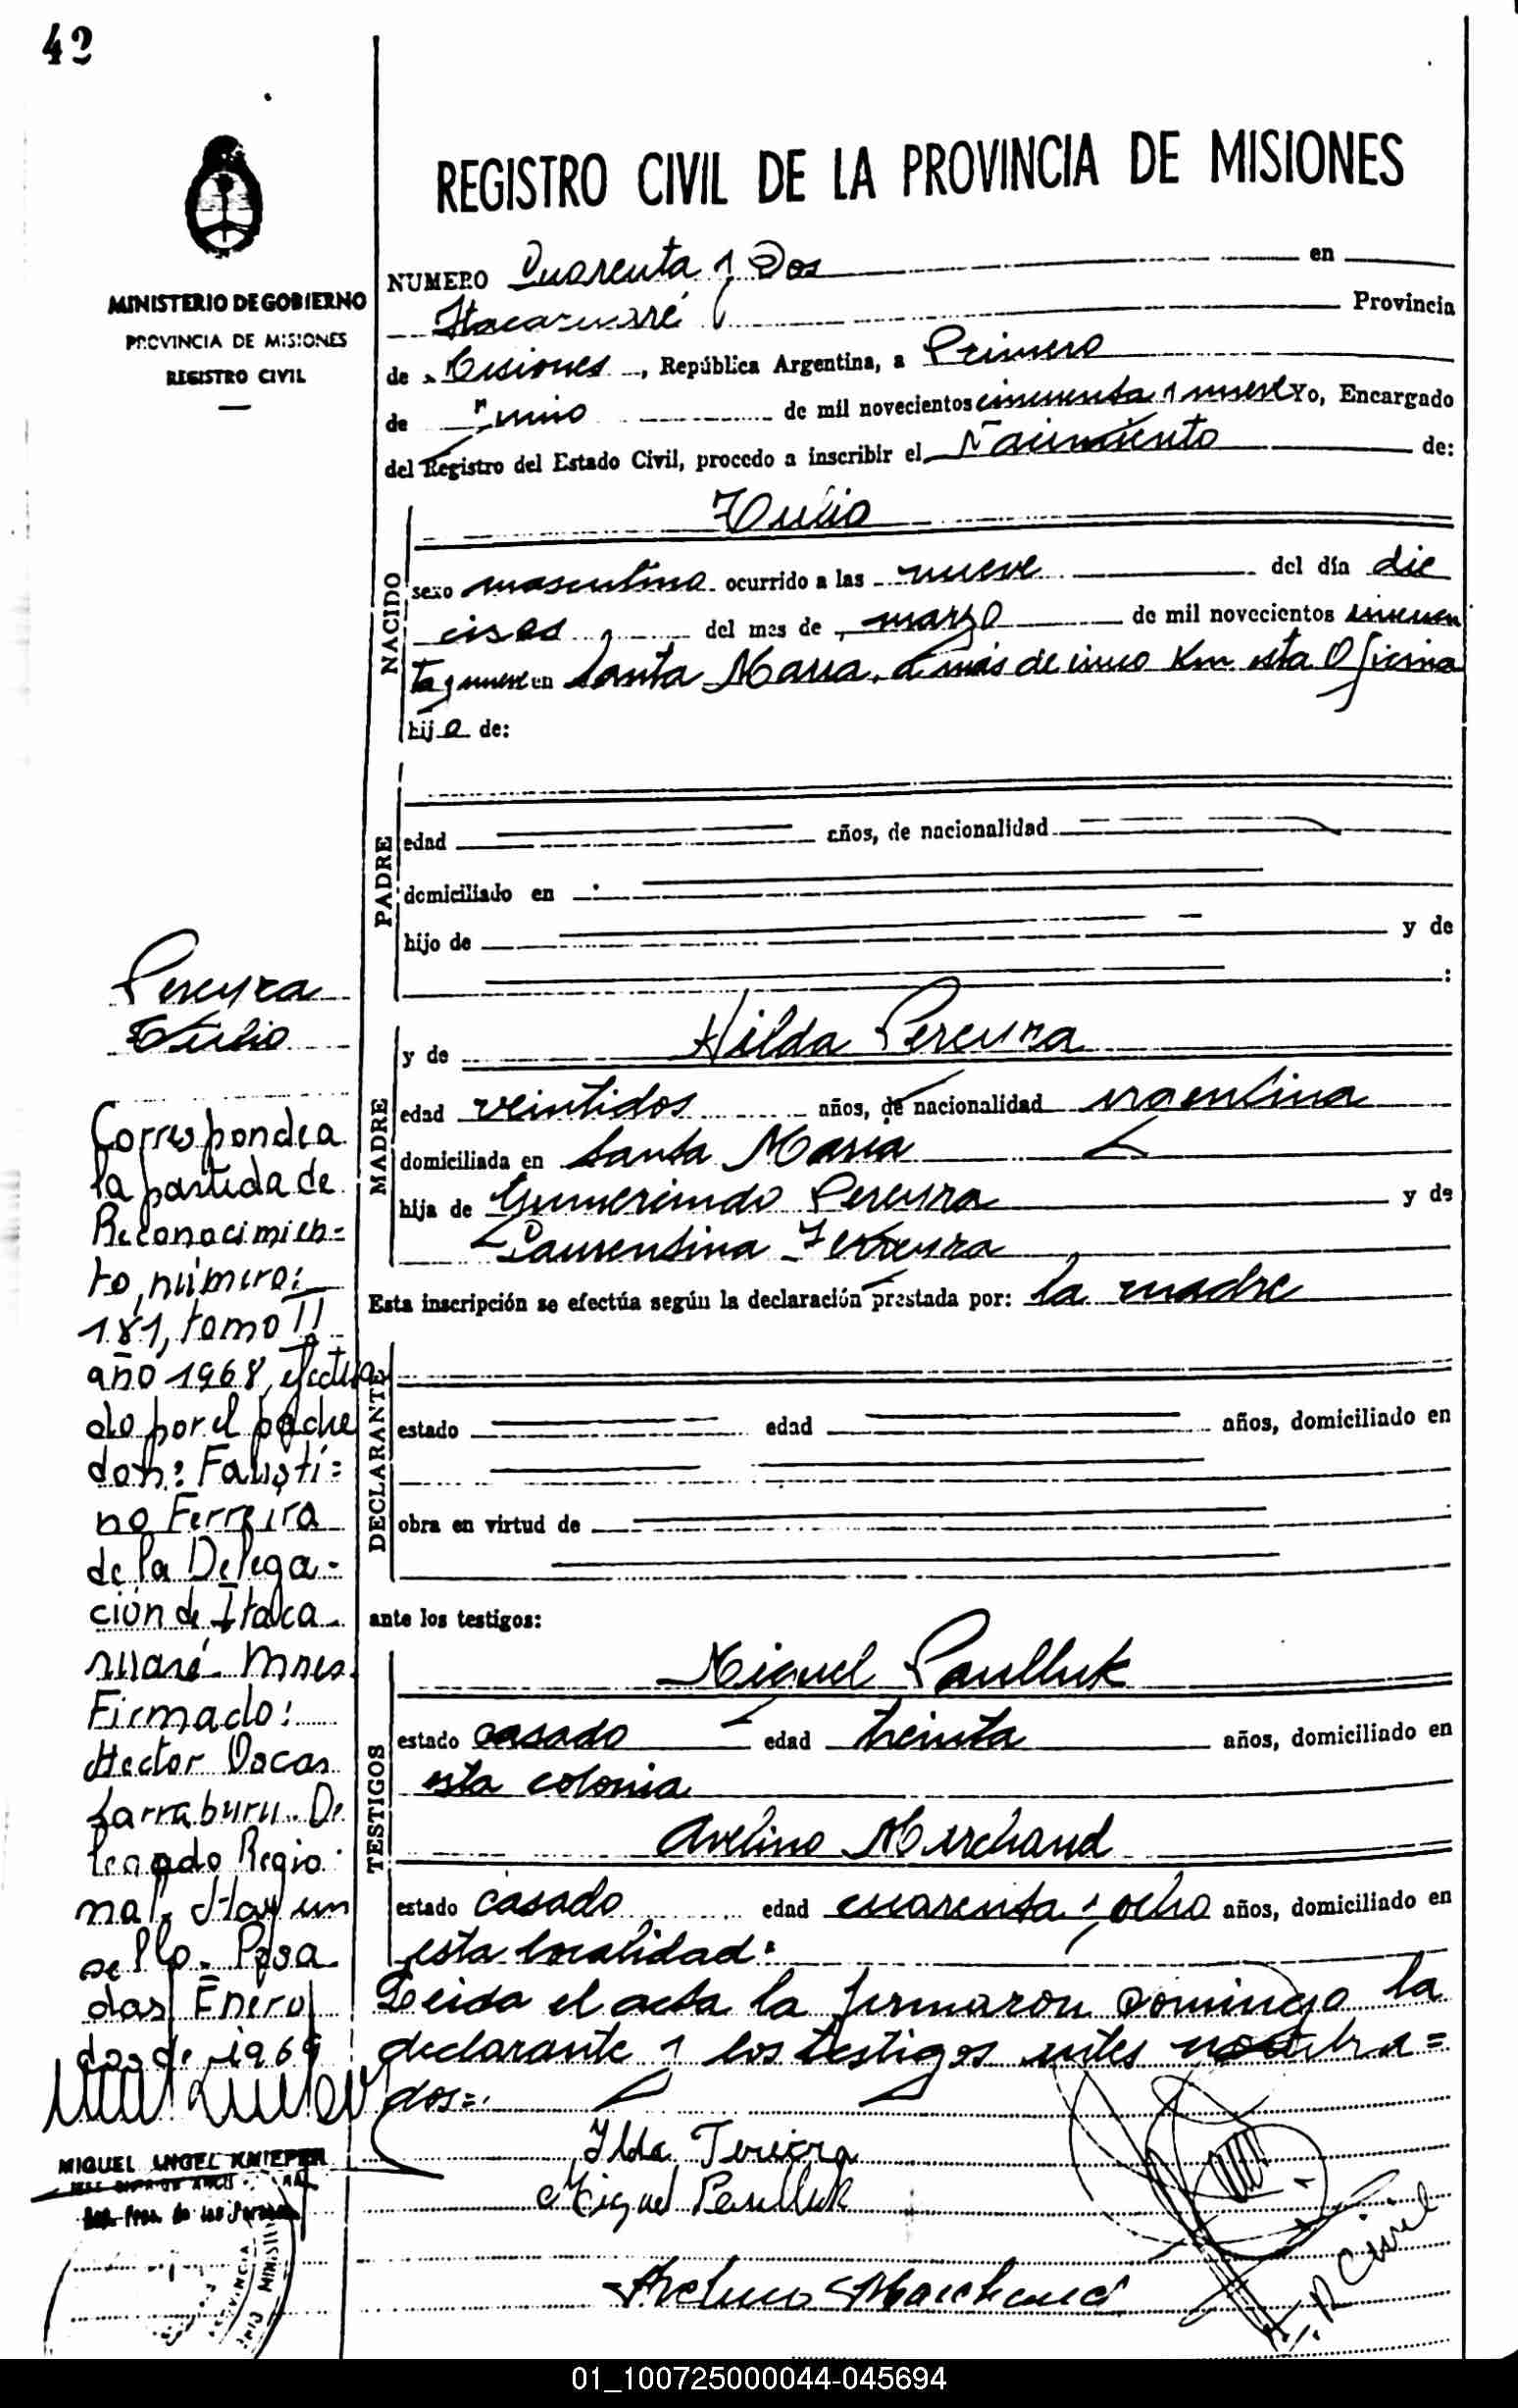 42
REGISTRO CIVIL DE LA PROVINCIA DE MISIONES
MINISTERIO DE GOBIERNO
PROVINCIA DE MISIONES
REGISTRO CIVIL
NUMERO Cuarenta y Dos en
Itacaruaré Provincia
de Misiones, República Argentina, a Primero
de Junio de mil novecientos cincuenta y nueve Yo, Encargado
del Registro del Estado Civil, procedo a inscribir el Nacimiento de:
NACIDO
Tulio
sexo masculino ocurrido a las nueve del día die
ciseis del mes de marzo de mil novecientos cincuen
ta y nueve en Santa Maria, a más de cinco Km esta Oficina
hijo de:
PADRE
edad años, de nacionalidad
domiciliado en
hijo de y de
:
MADRE
y de Hilda Pereyra
edad veintidos años, de nacionalidad argentina
domiciliada en Santa Maria
hija de Gumercindo Pereyra y de
Laurentina Ferreyra
Esta inscripción se efectúa según la declaración prestada por: la madre
DECLARANTE
estado edad años, domiciliado en
obra en virtud de
ante los testigos:
TESTIGOS
Miguel Paulluk
estado casado edad treinta años, domiciliado en
esta colonia
Avelino Marchand
estado casado edad cuarenta y ocho años, domiciliado en
esta localidad.
Leida el acta la firmaron conmigo la
declarante y los testigos antes nombra=
dos=.
Ilda Pereira
Miguel Paulluk
Avelino Marchand
J. R Civil
Pereyra
Tulio
Corresponde a
la partida de
Reconocimien=
to, número:
181, tomo II
año 1968, efectua
do por el padre
don: Fausti=
no Ferreira
de la Delega=
ción de Itaca
ruaré Mnes.
Firmado:
Hector Vacas
Larraburu. De
legado Regio
nal. Hay un
sello. Posa
das, Enero
dos de 1969
MIGUEL ANGEL KNIEPER
01_100725000044-045694